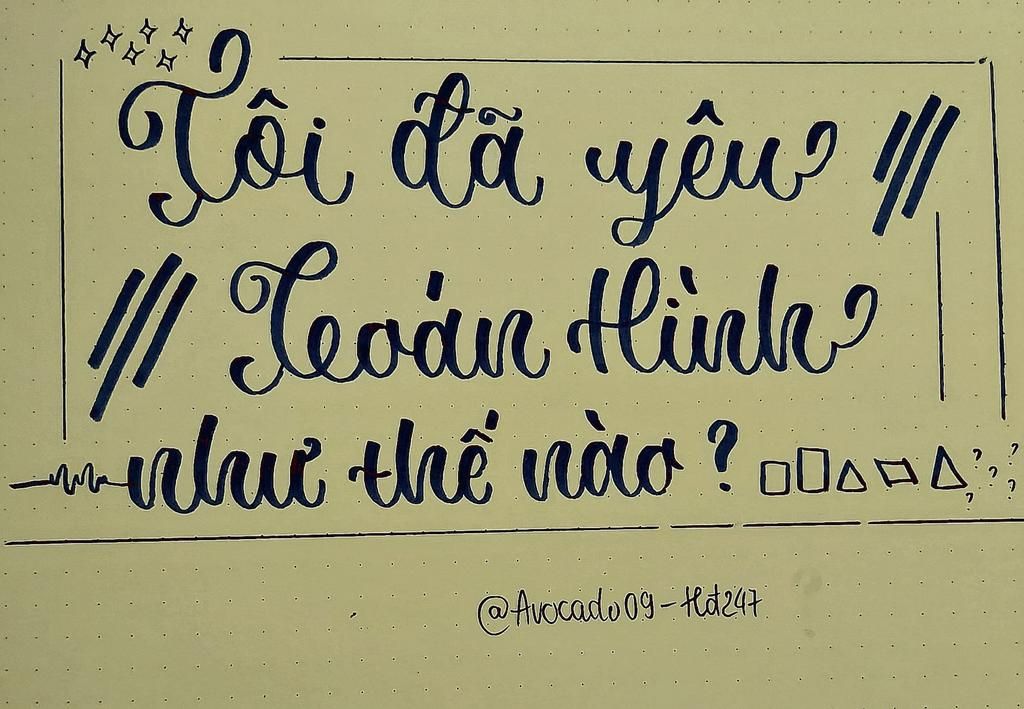 Tôi đã yêu
Toán Hình
như thế nào?
@Avocado09-Hd247